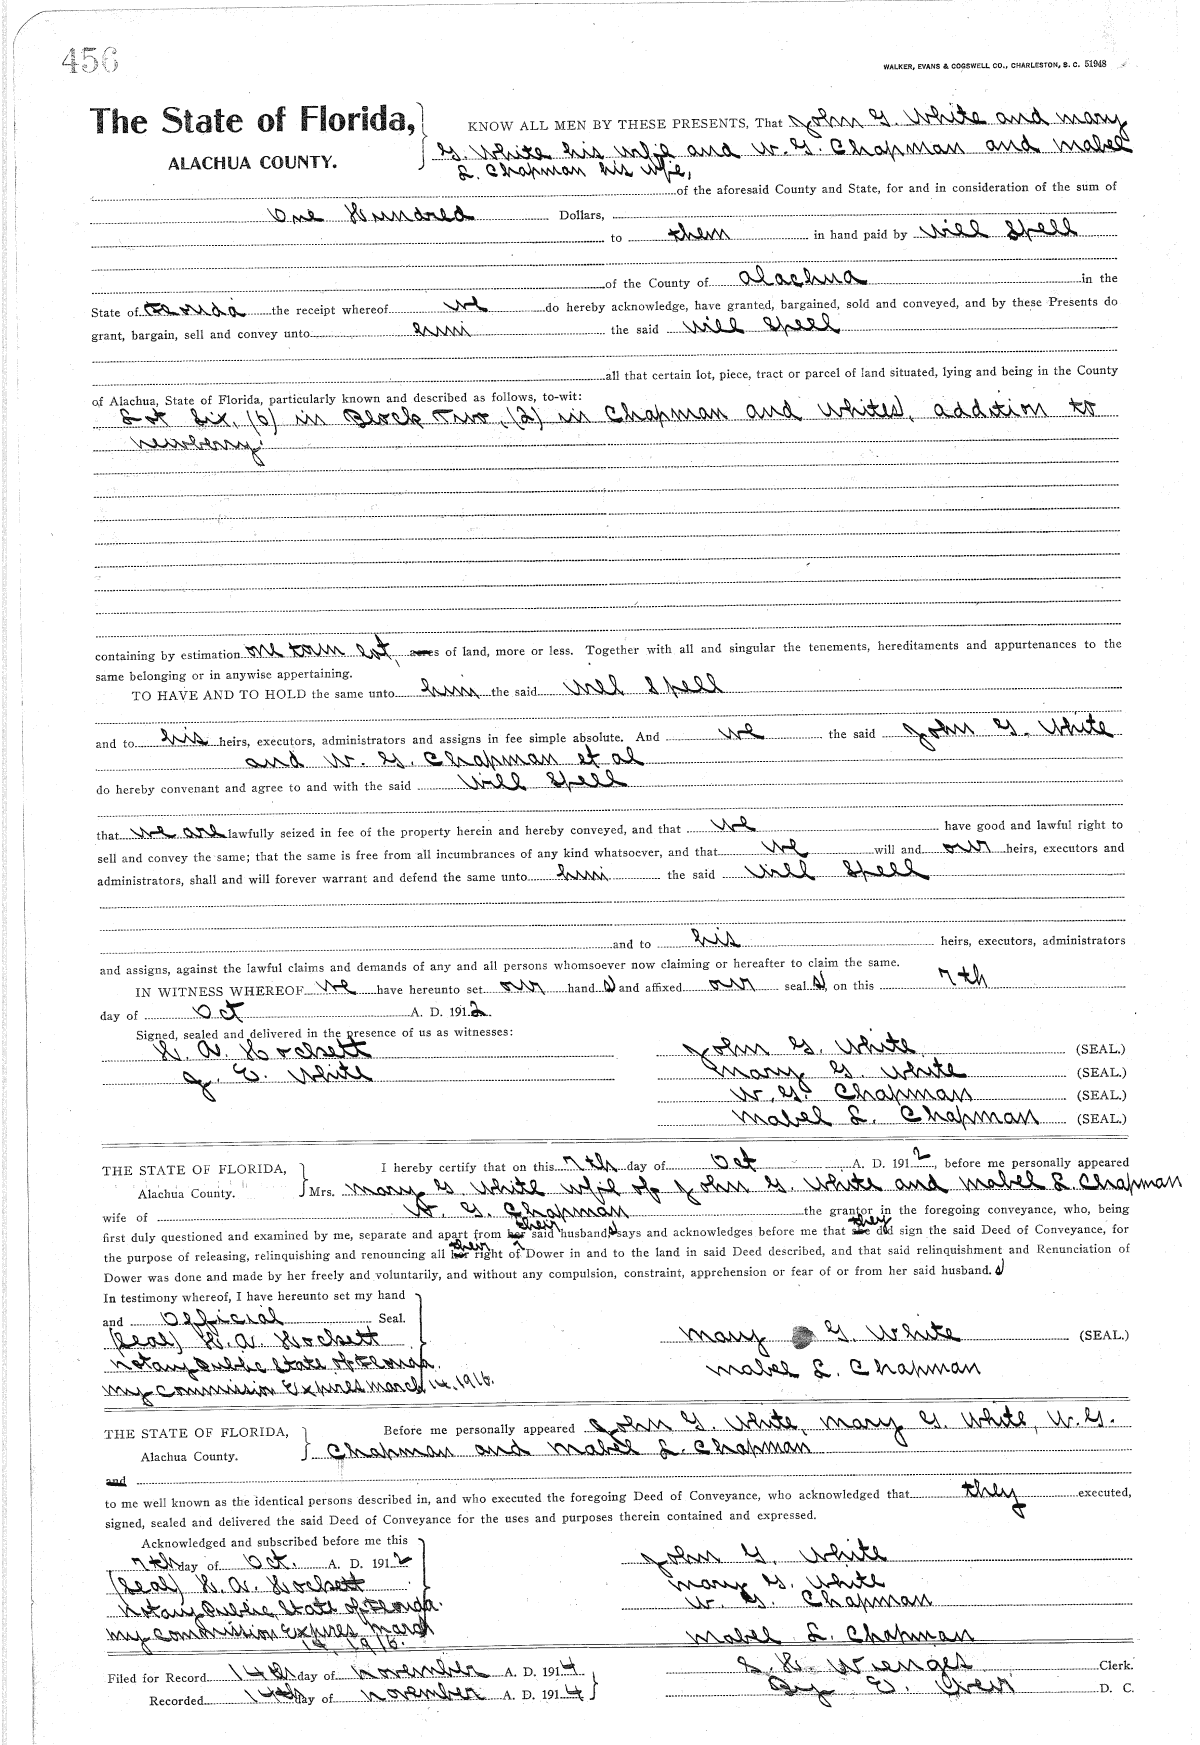 456
WALKER, EVANS & COGSWELL CO., CHARLESTON, S. C. 51948
The State of Florida,
ALACHUA COUNTY.
KNOW ALL MEN BY THESE PRESENTS, That John G. White and Mary
G. White his wife and W. G. Chapman and Mabel
L. Chapman his wife,
of the aforesaid County and State, for and in consideration of the sum of
One Hundred Dollars,
to them in hand paid by Will Spell
of the County of Alachua in the
State of Florida the receipt whereof we do hereby acknowledge, have granted, bargained, sold and conveyed, and by these Presents do
grant, bargain, sell and convey unto him the said Will Spell
all that certain lot, piece, tract or parcel of land situated, lying and being in the County
of Alachua, State of Florida, particularly known and described as follows, to-wit:
Lot Six, (6) in Block Two, (2) in Chapman and Whites, addition to
Newberry.
containing by estimation one town lot, acres of land, more or less. Together with all and singular the tenements, hereditaments and appurtenances to the
same belonging or in anywise appertaining.
TO HAVE AND TO HOLD the same unto him the said Will Spell
and to his heirs, executors, administrators and assigns in fee simple absolute. And we the said John G. White
and W. G. Chapman et al
do hereby convenant and agree to and with the said Will Spell
that we are lawfully seized in fee of the property herein and hereby conveyed, and that we have good and lawful right to
sell and convey the same; that the same is free from all incumbrances of any kind whatsoever, and that we will and our heirs, executors and
administrators, shall and will forever warrant and defend the same unto him the said Will Spell
and to his heirs, executors, administrators
and assigns, against the lawful claims and demands of any and all persons whomsoever now claiming or hereafter to claim the same.
IN WITNESS WHEREOF we have hereunto set our hand s and affixed our seal s, on this 7th
day of Oct A. D. 1912.
Signed, sealed and delivered in the presence of us as witnesses:
J. E. White
John G. White (SEAL.)
Mary G. White (SEAL.)
W. G. Chapman (SEAL.)
Mabel L. Chapman (SEAL.)
THE STATE OF FLORIDA,
Alachua County.
I hereby certify that on this 7th day of Oct A. D. 1912, before me personally appeared
Mrs. Mary G. White wife of John G. White and Mabel L. Chapman
wife of W. G. Chapman the grantor in the foregoing conveyance, who, being
first duly questioned and examined by me, separate and apart from her their said husband s says and acknowledges before me that she they did sign the said Deed of Conveyance, for
the purpose of releasing, relinquishing and renouncing all her their right of Dower in and to the land in said Deed described, and that said relinquishment and Renunciation of
Dower was done and made by her freely and voluntarily, and without any compulsion, constraint, apprehension or fear of or from her said husband. s
In testimony whereof, I have hereunto set my hand
and Official Seal.
(Seal)
Notary Public State of Florida.
My Commission Expires March 14, 1916.
Mary G. White (SEAL.)
Mabel L. Chapman
THE STATE OF FLORIDA,
Alachua County.
Before me personally appeared John G. White, Mary G. White, W. G.
Chapman and Mabel L. Chapman
and
to me well known as the identical persons described in, and who executed the foregoing Deed of Conveyance, who acknowledged that they executed,
signed, sealed and delivered the said Deed of Conveyance for the uses and purposes therein contained and expressed.
Acknowledged and subscribed before me this
7th day of Oct. A. D. 1912
(Seal)
Notary Public, State of Florida.
My Commission Expires March
14 1916.
John G. White
Mary G. White
W. G. Chapman
Mabel L. Chapman
Filed for Record 14th day of November A. D. 1914
Recorded 14th day of November A. D. 1914
S. H. Wienges Clerk.
By E. D. C.